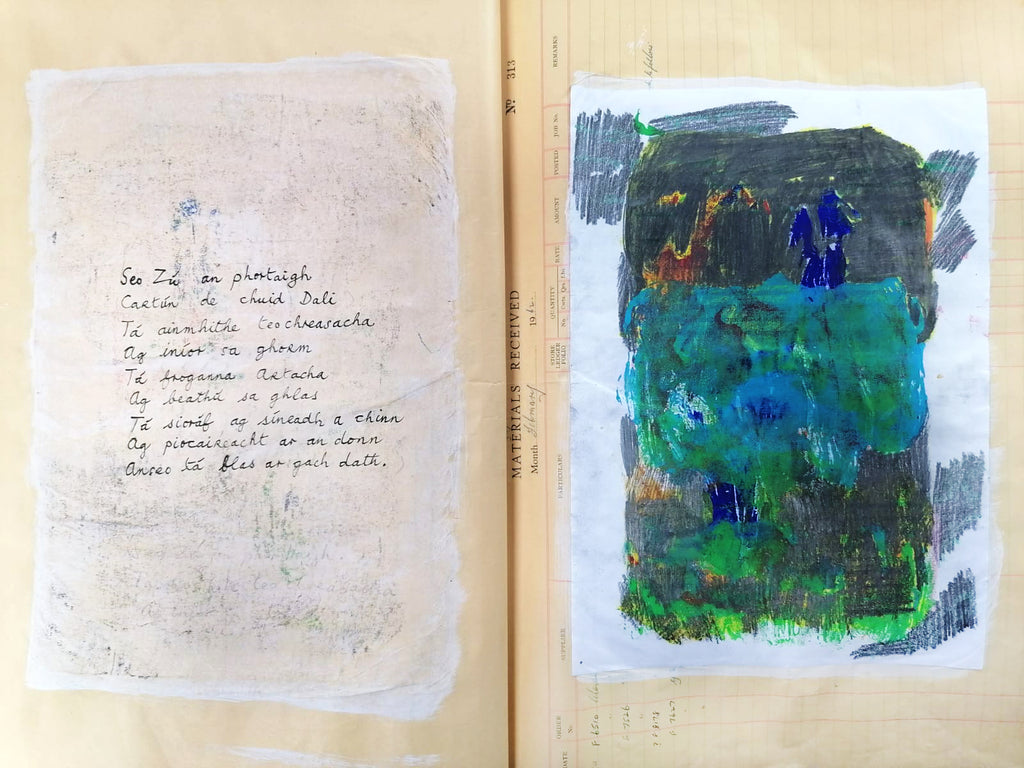 Seo Zú an phortaigh
Cartún de chuid Dali
Tá ainmhithe teochreasacha
Ag iníor sa ghorm
Tá froganna Artacha
Ag beathú sa ghlas
Tá sioráf ag síneadh a chinn
Ag piocaireacht ar an donn
Anseo tá blas ar gach dath.
No. 313
MATERIALS RECEIVED
Month February 196
REMARKS
JOB No.
POSTED
AMOUNT
RATE
QUANTITY
No
STORE LEDGER FOLIO
PARTICULARS
SUPPLIER
ORDER No.
DATE